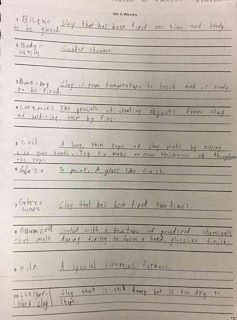 1. Bisque Clay that has been fired one time and ready
to be glazed.
2. Body -
3. Bone-Dry Clay is room temperature to touch and is ready
to be fired.
4. Ceramics The process of creating objects from clay
and hardening them by fire.
5. Coil A long, thin rope of clay made by rolling
with your hands. Try to make an even thickness
6. Glaze paint. A glass like finish.
7. Glaze
Clay that has been fired two times.
8. Glazed coated with a mixture of powdered chemicals
that melt during firing to form a hard, glass like finish.
9. Kiln A special ceramics furnace.
10. Leather-
hard clay Clay that is still damp but is too dry to
shape.